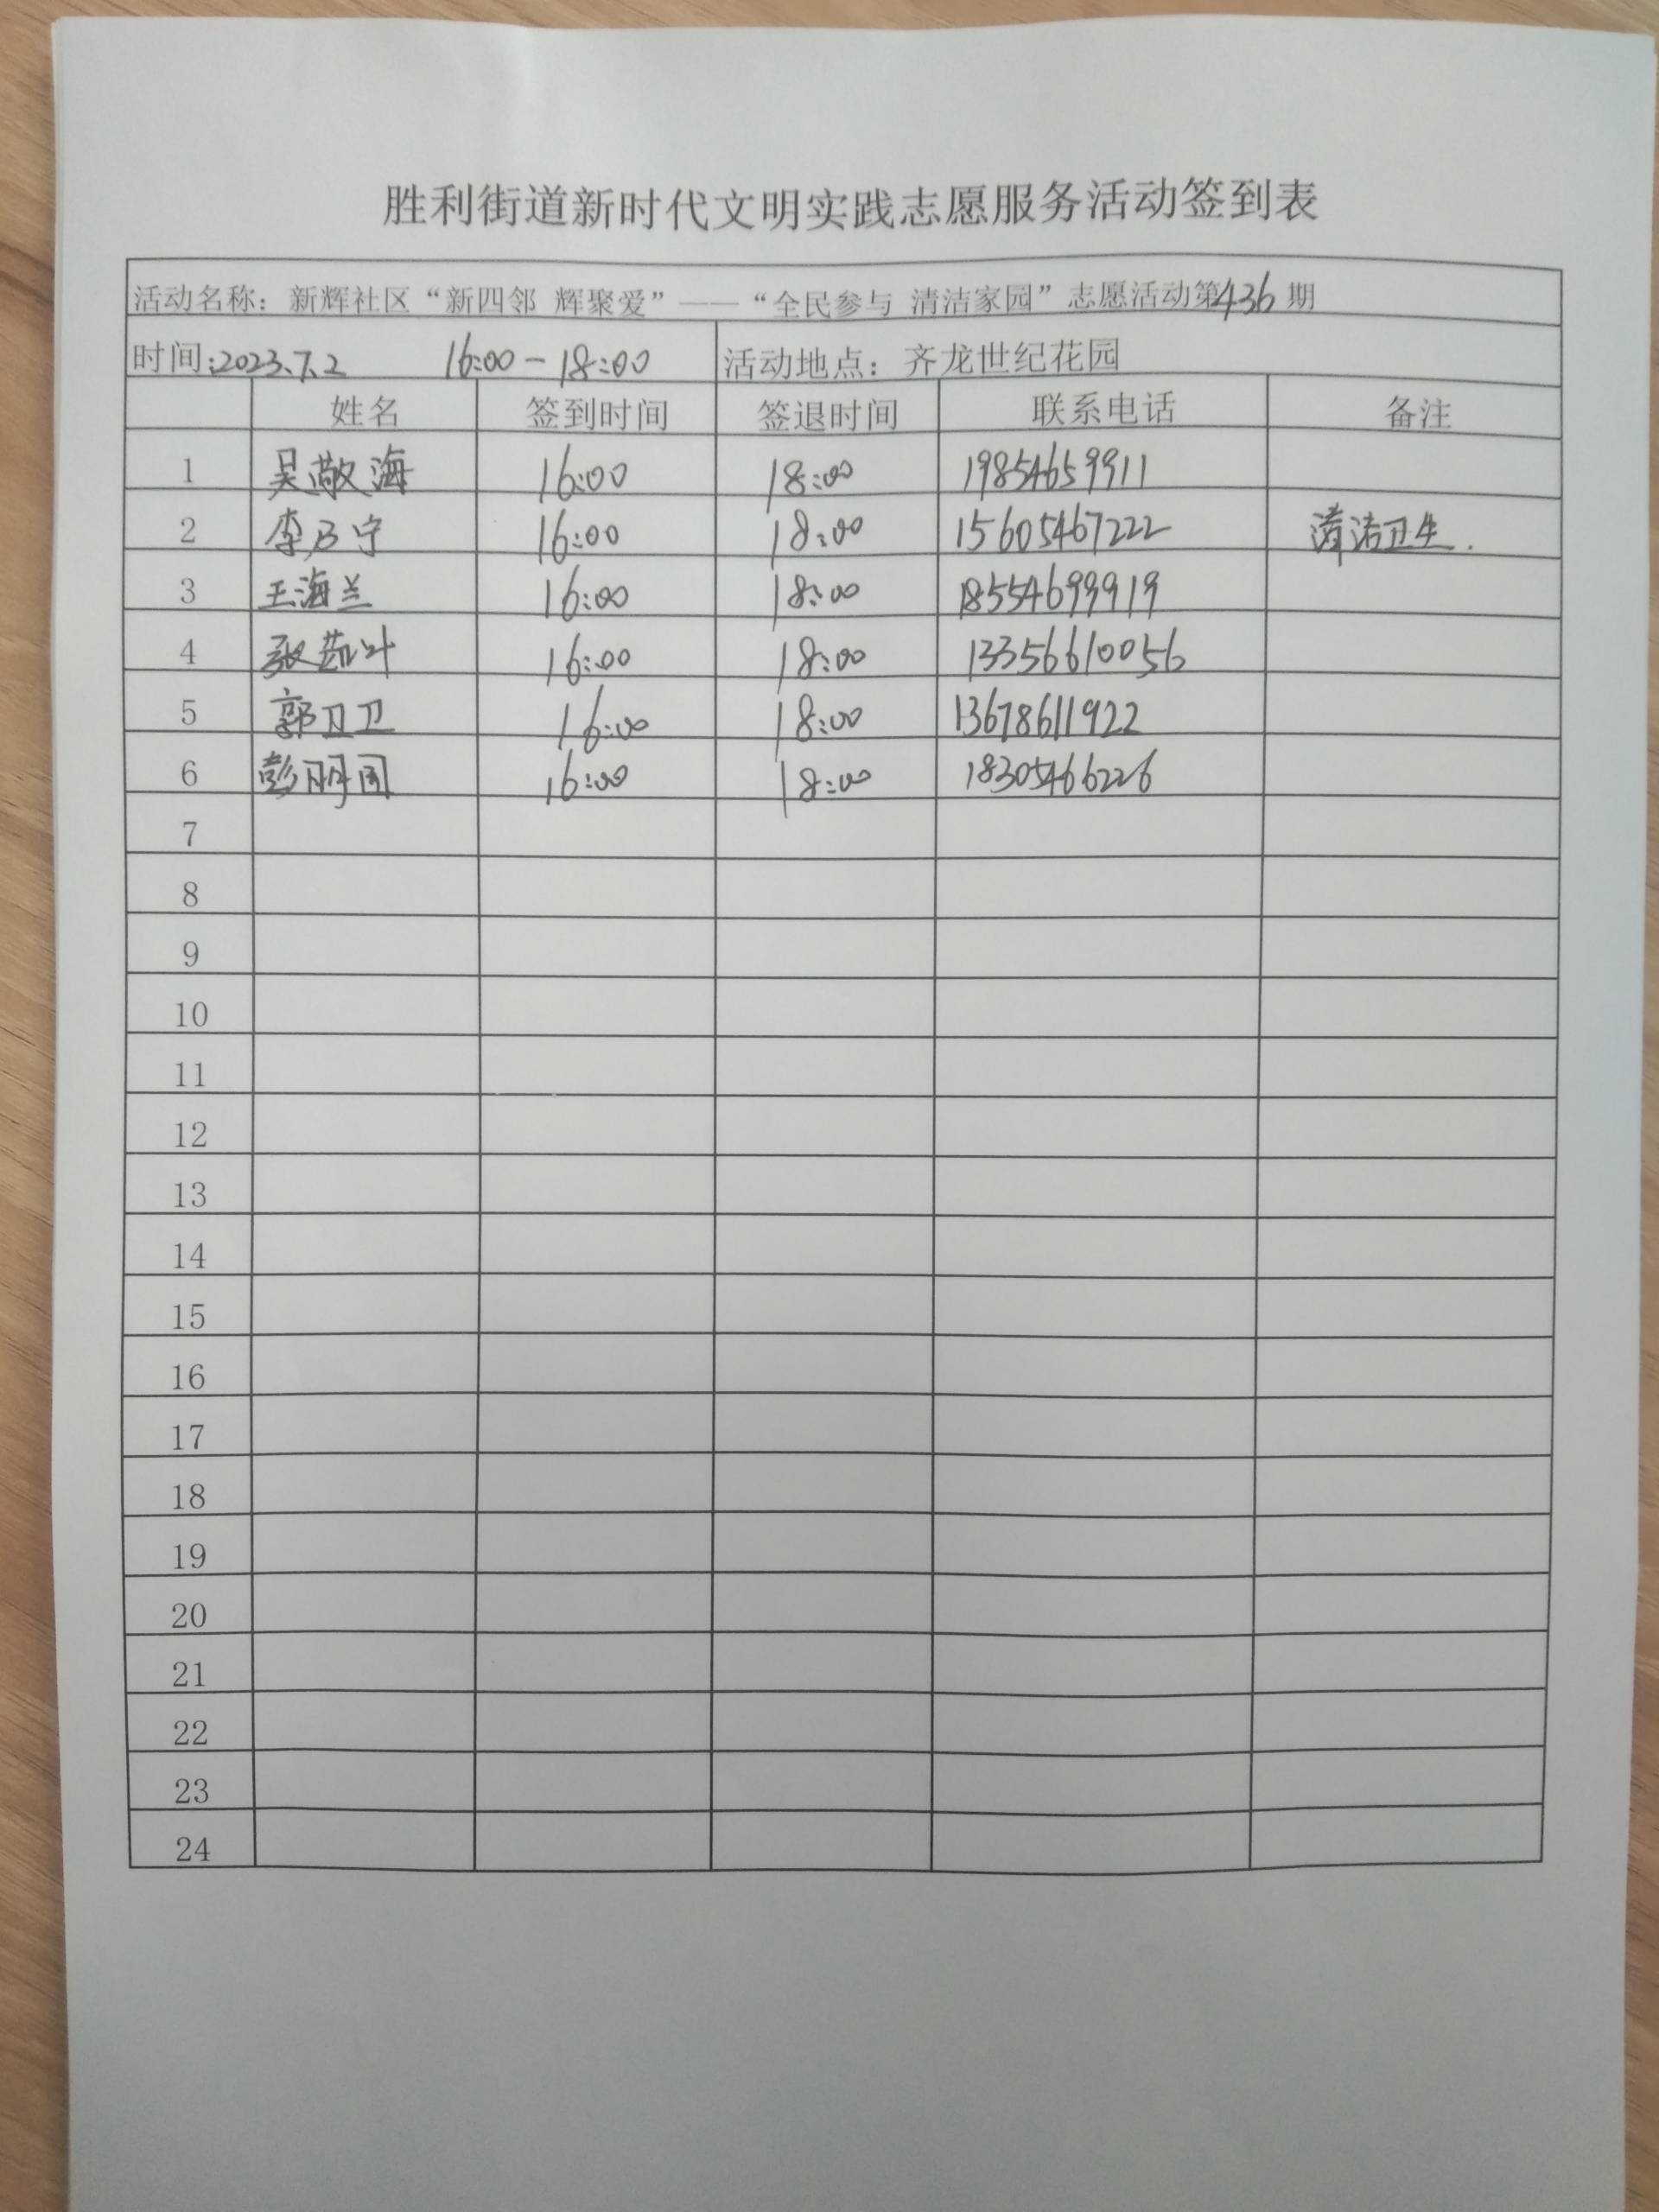 胜利街道新时代文明实践志愿服务活动签到表
活动名称：新辉社区“新四邻 辉聚爱”——“全民参与 清洁家园”志愿活动第436期
时间:2023.7.2 16:00-18:00 活动地点：齐龙世纪花园
姓名 签到时间 签退时间 联系电话 备注
1 吴敬海 16:00 18:00 19854659911
2 李乃宁 16:00 18:00 15605467222 清洁卫生.
3 王海兰 16:00 18:00 18554699919
4 张 叶 16:00 18:00 13356610056
5 郭卫卫 16:00 18:00 13678611922
6 彭 16:00 18:00 18305466226
7
8
9
10
11
12
13
14
15
16
17
18
19
20
21
22
23
24